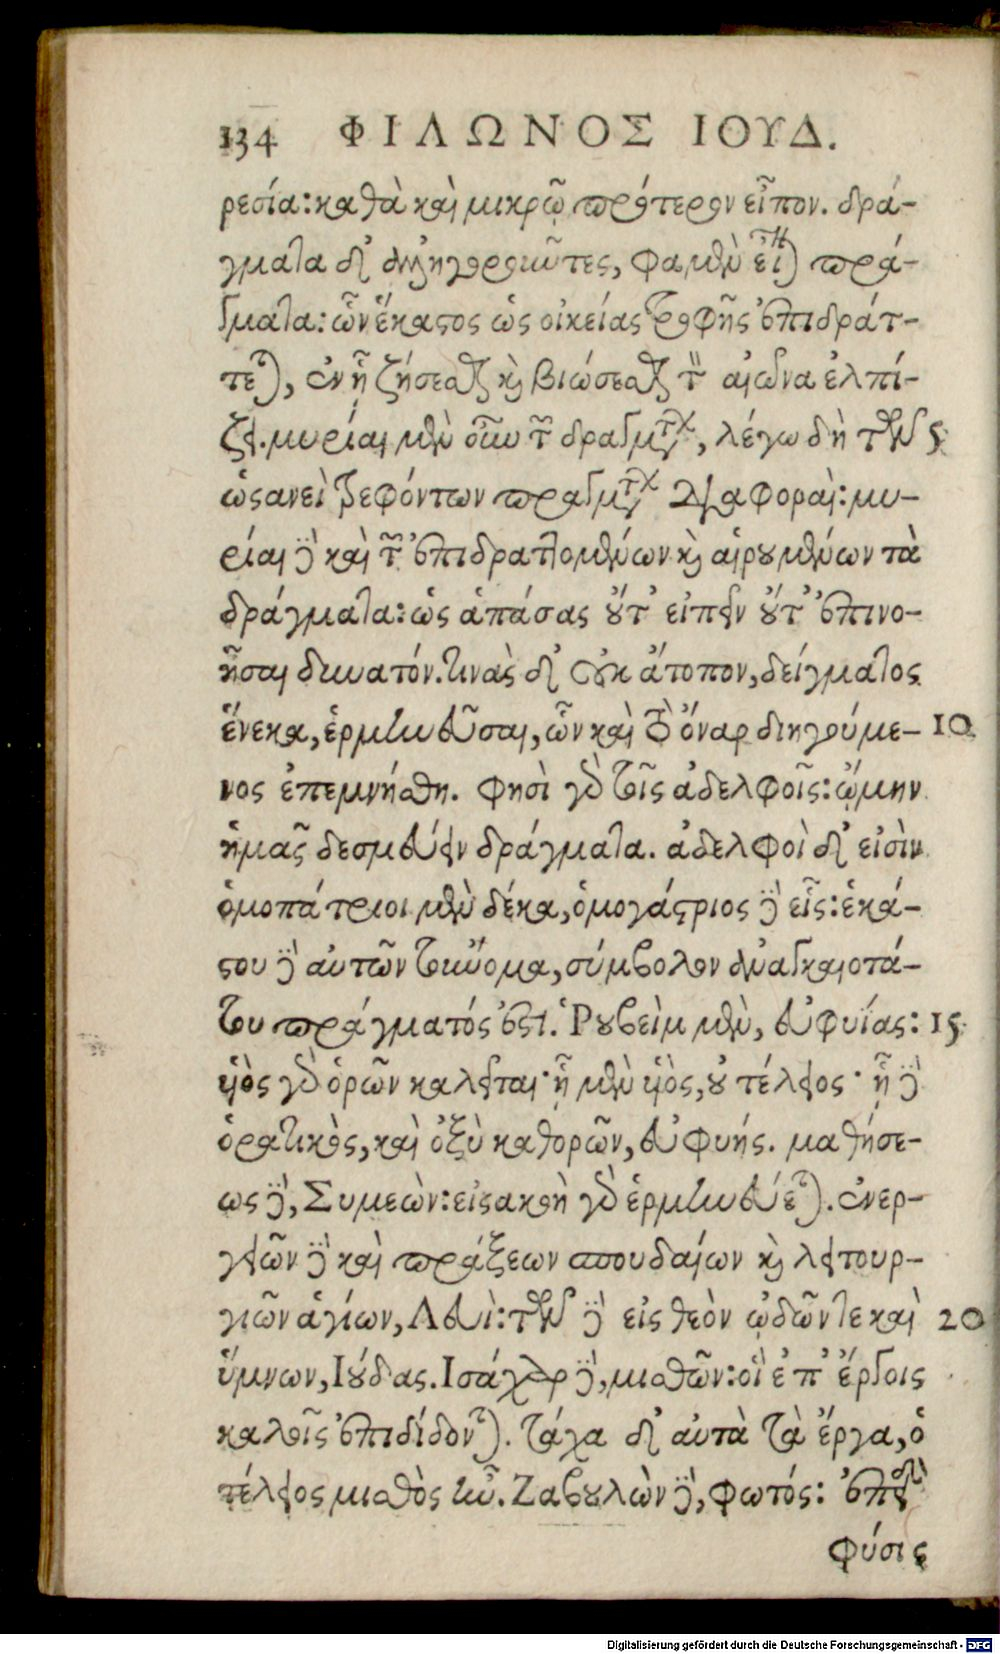 134 ΦΙΛΩΝΟΣ ΙΟΥΔ.
ρεσία: καθὰ καὶ μικρῷ πρότερον εἶπον. δρά-
γματα δ' ἀλληγοροῦντες, φαμὲν εἶναι πρά-
γματα: ὧν ἕκαστος ὡς οἰκείας τροφῆς ἐπιδράτ-
τεται, ἐν ᾗ ζήσεσθαι καὶ βιώσεσθαι τὸν αἰῶνα ἐλπί-
ζει. μυρίαι μὲν οὖν τῶν δραγμάτων, λέγω δὴ τῶν 5
ὡσανεὶ τρεφόντων πραγμάτων διαφοραὶ: μυ-
ρίαι δὲ καὶ τῶν ἐπιδραττομένων καὶ αἱρουμένων τὰ
δράγματα: ὡς ἁπάσας οὔτ' εἰπεῖν οὔτ' ἐπινο-
ῆσαι δυνατόν. τινὰς δ' οὐκ ἄτοπον, δείγματος
ἕνεκα, ἑρμηνεῦσαι, ὧν καὶ τὸ ὄναρ διηγούμε- 10
νος ἐπεμνήσθη. φησὶ γὰρ τοῖς ἀδελφοῖς: ᾤμην
ἡμᾶς δεσμεύειν δράγματα. ἀδελφοὶ δ' εἰσὶν
ὁμοπάτριοι μὲν δέκα, ὁμογάστριος δὲ εἷς: ἑκά-
στου δὲ αὐτῶν τοὔνομα, σύμβολον ἀναγκαιοτά-
του πράγματός ἐστι. Ῥουβεὶμ μὲν, εὐφυΐας: 15
υἱὸς γὰρ ὁρῶν καλεῖται· ᾗ μὲν υἱὸς, οὐ τέλειος· ᾗ δὲ
ὁρατικὸς, καὶ ὀξὺ καθορῶν, εὐφυής. μαθήσε-
ως δὲ, Συμεὼν: εἰσακοὴ γὰρ ἑρμηνεύεται. ἐνερ-
γειῶν δὲ καὶ πράξεων σπουδαίων καὶ λειτουρ-
γιῶν ἁγίων, Λευὶ: τῶν δὲ εἰς θεὸν ᾠδῶν τε καὶ 20
ὕμνων, Ιούδας. Ισάχαρ δὲ, μισθῶν: οἳ ἐπ' ἔργοις
καλοῖς ἐπιδίδονται. τάχα δ' αὐτὰ τὰ ἔργα, ὁ
τέλειος μισθὸς ἦν. Ζαβουλὼν δὲ, φωτός: ἐπειδὴ
φύσις
Digitalisierung gefördert durch die Deutsche Forschungsgemeinschaft - DFG